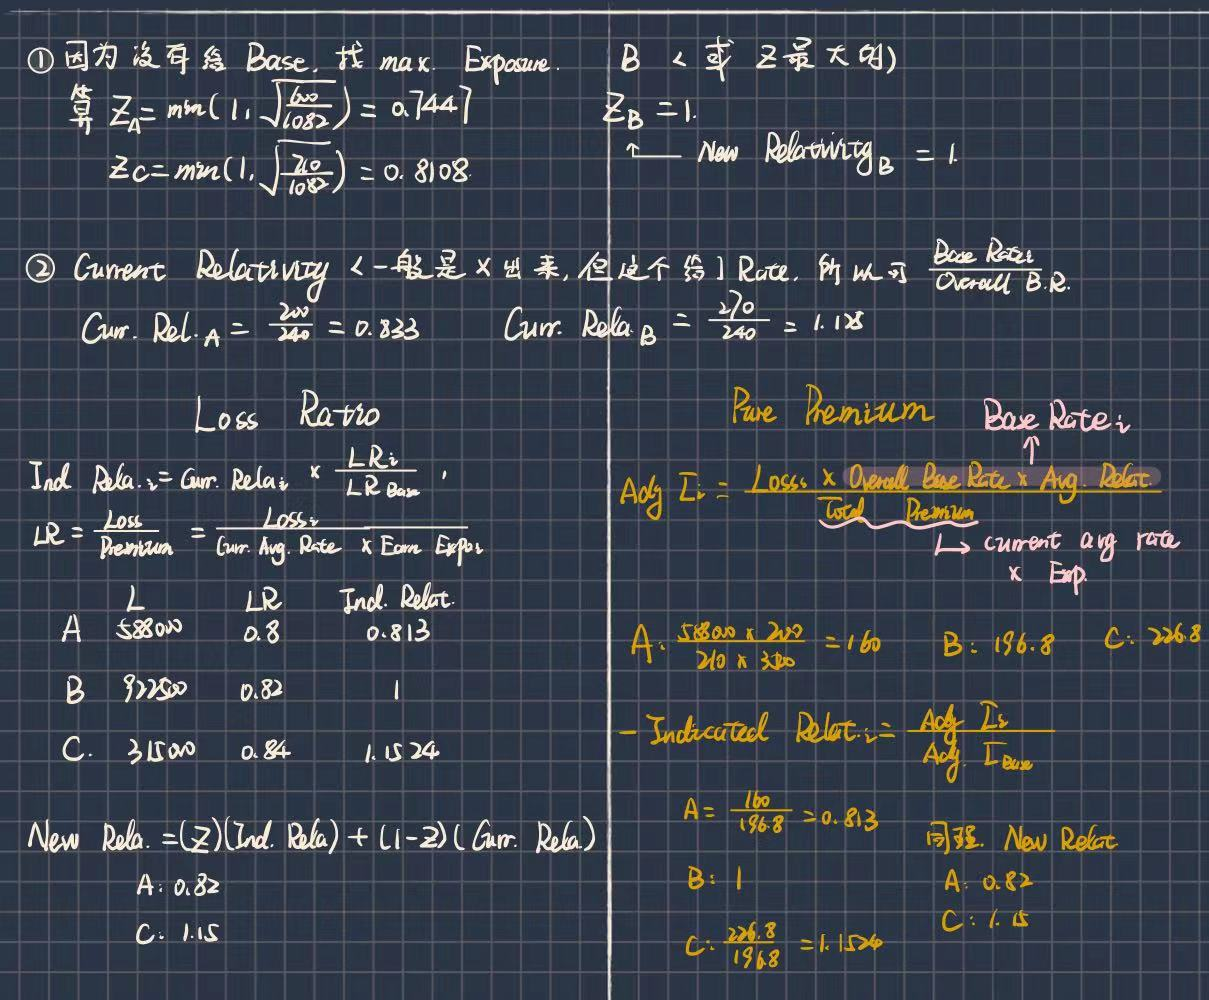 ① 因为没有给 Base, 找 max. Exposure. B (或 Z最大的)
算 Z_A = min(1, √(600/1082)) = 0.7447
Z_B = 1.
Z_C = min(1, √(710/1082)) = 0.8108
↑ New Relativity_B = 1.
② Current Relativity (一般是 × 出来, 但这个给了 Rate, 所以可 Base Rate_i / Overall B.R.
Curr. Rel._A = 200/240 = 0.833 Curr. Rela._B = 270/240 = 1.125
Loss Ratio
Ind Rela._i = Curr. Rela_i × LR_i / LR_Base,
LR = Loss / Premium = Loss_i / (Curr. Avg. Rate × Earn Expo_i)
L LR Ind. Relat.
A 588000 0.8 0.813
B 922500 0.82 1
C. 315000 0.84 1.1524
New Rela. = (Z)(Ind. Rela) + (1-Z)(Curr. Rela.)
A: 0.82
C: 1.15
Pure Premium
Base Rate_i
↑
Adj L_i = Loss_i × Overall Base Rate × Avg. Relat. / Total Premium
↳ current avg rate
× Exp.
A: 588000 × 200 / 210 × 3500 = 160 B: 196.8 C: 226.8
- Indicated Relat._i = Adj L_i / Adj. L_Base
A = 160/196.8 = 0.813
B: 1
C: 226.8/196.8 = 1.1524
同理. New Relat
A: 0.82
C: 1.15